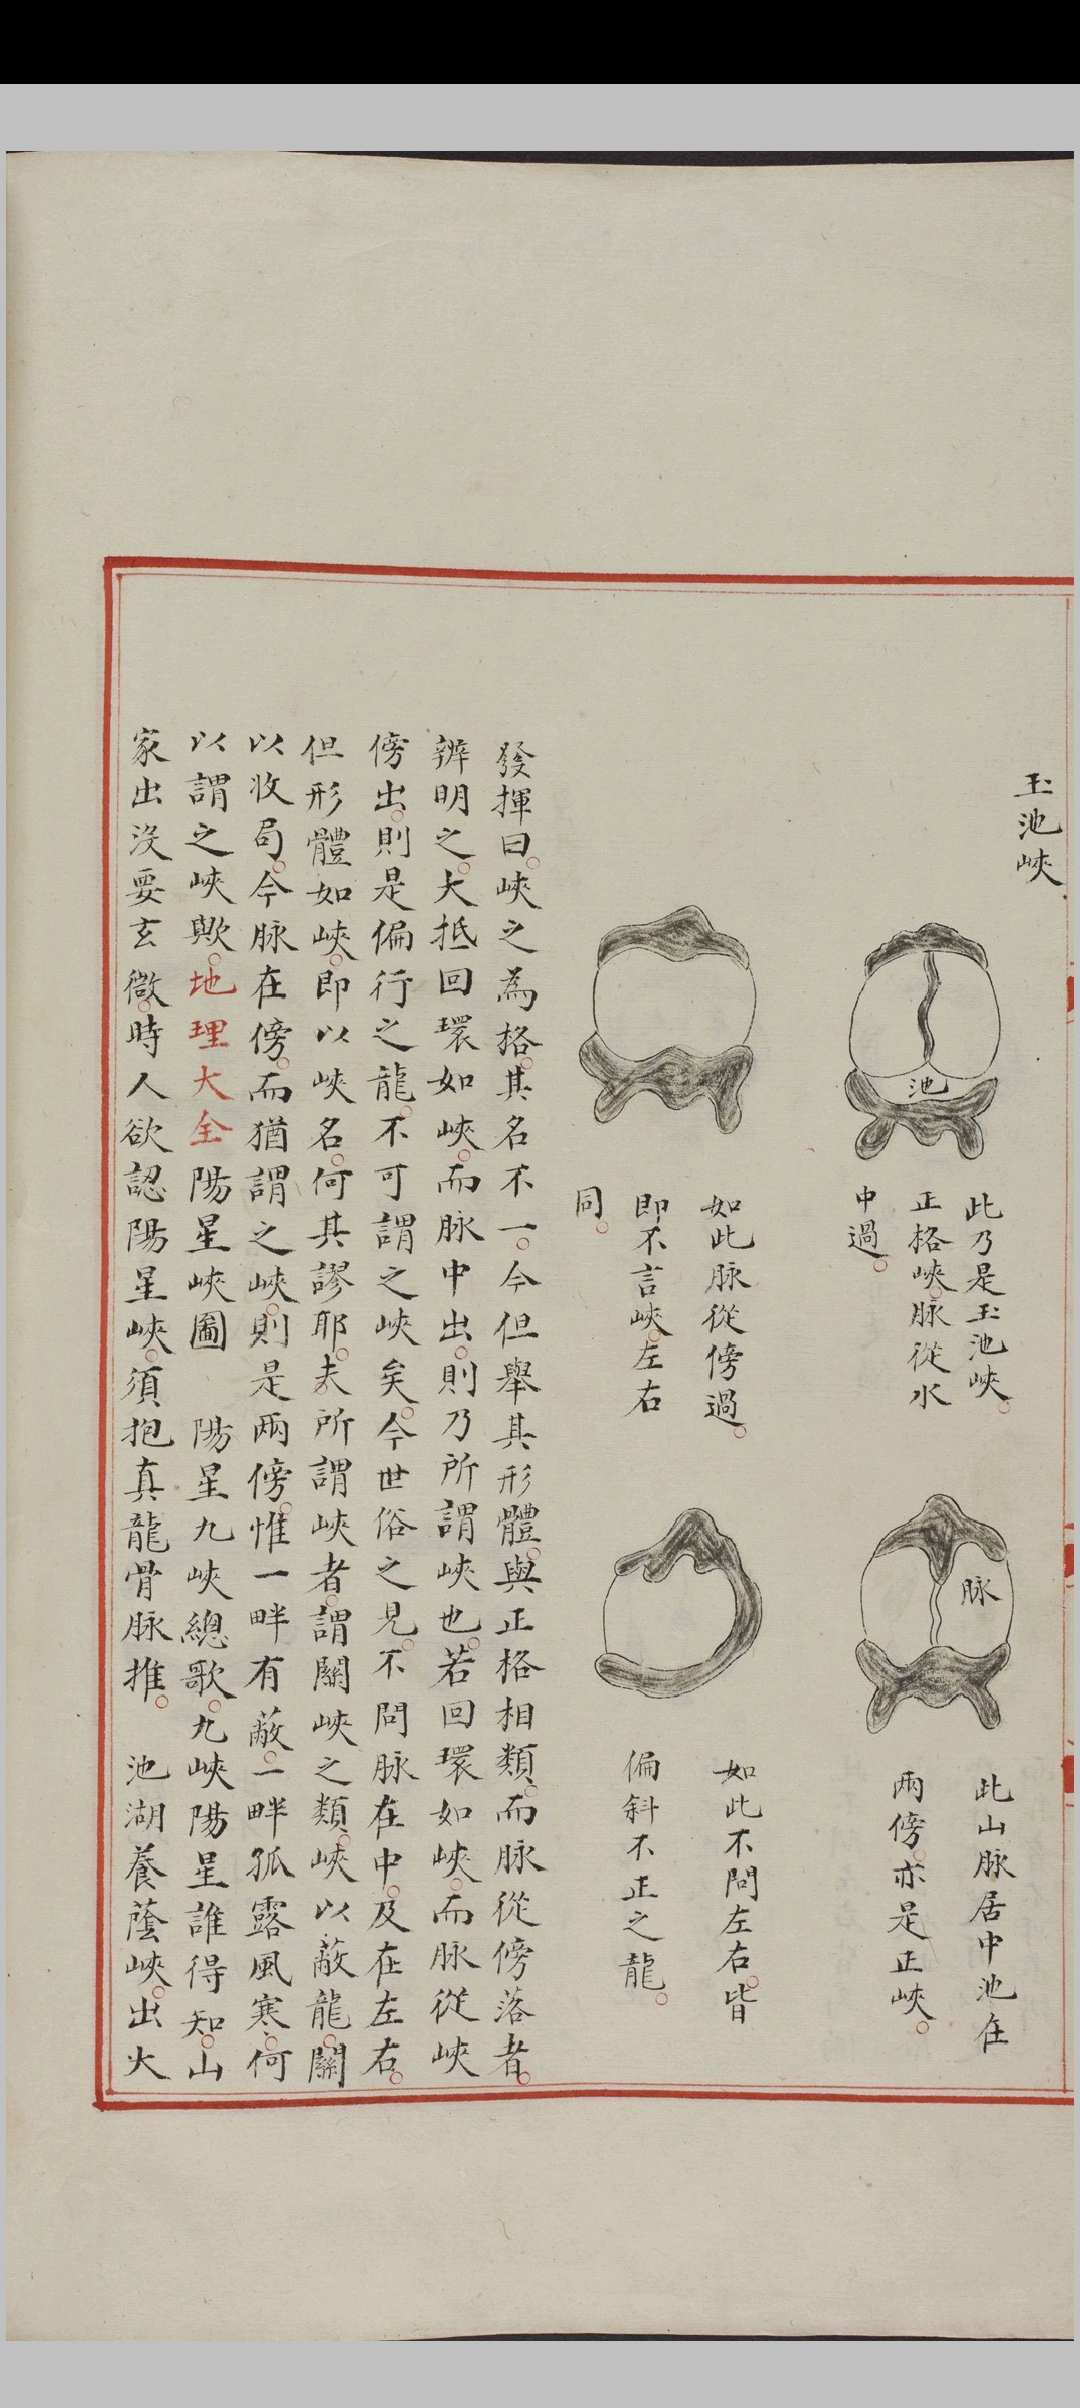 玉池峽
池
此乃是玉池峽。
正格峽。脉從水
中過。
脉
此山脉居中池在
兩傍。亦是正峽。
如此脉從傍過。
即不言峽。左右
同。
如此不問左右。皆
偏斜不正之龍。
發揮曰。峽之為格。其名不一。今但舉其形體。與正格相類。而脉從傍落者。
辨明之。大抵回環如峽。而脉中出。則乃所謂峽也。若回環如峽。而脉從峽
傍出。則是偏行之龍。不可謂之峽矣。今世俗之見。不問脉在中。及在左右。
但形體如峽。即以峽名。何其謬耶。夫所謂峽者。謂關峽之類。峽以蔽龍。關
以收局。今脉在傍。而猶謂之峽。則是兩傍。惟一畔有蔽。一畔孤露風寒。何
以謂之峽歟。地理大全陽星峽圖 陽星九峽總歌。九峽陽星誰得知。山
家出沒要玄微。時人欲認陽星峽。須抱真龍骨脉推。 池湖養蔭峽。出火